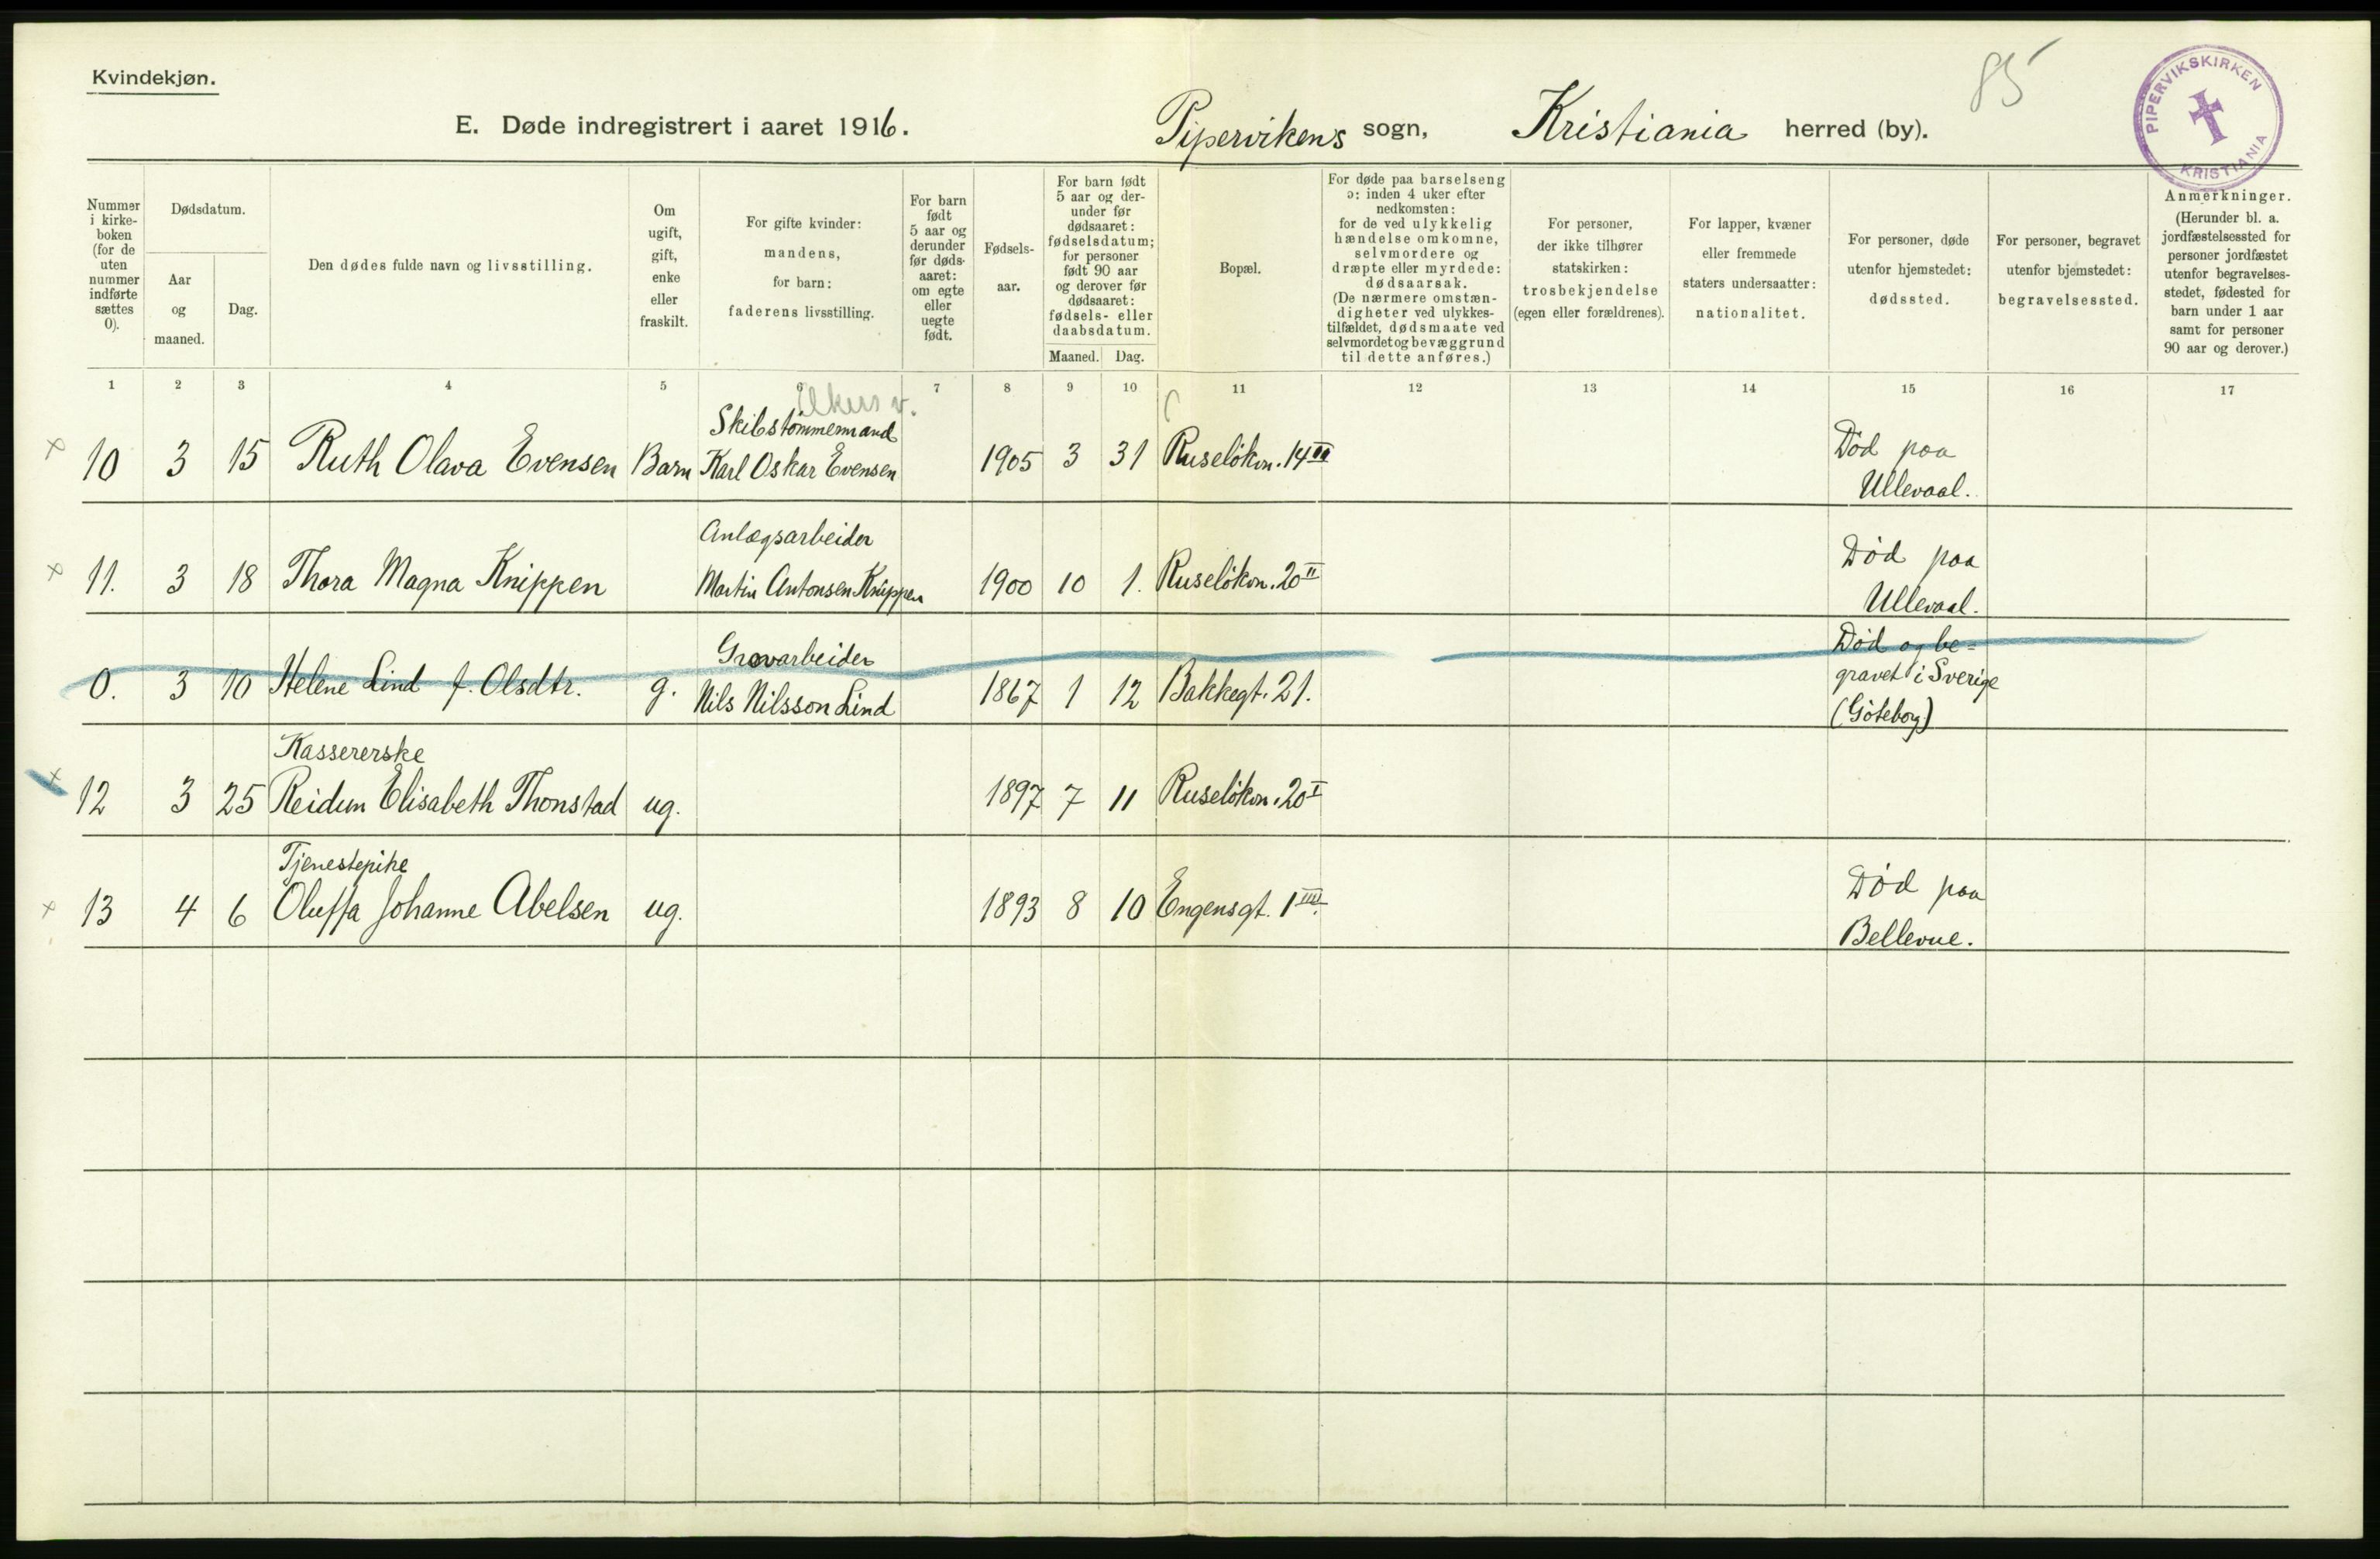 Kvindekjøn.
85
PIPERVIKSKIRKEN
KRISTIANIA
E. Døde indregistrert i aaret 1916.
Pipervikens sogn, Kristiania herred (by).
Nummer i kirke-boken (for de uten nummer indførte sættes 0).
Dødsdatum.
Aar og maaned.
Dag.
Den dødes fulde navn og livsstilling.
Om ugift, gift, enke eller fraskilt.
For gifte kvinder: mandens, for barn: faderens livsstilling.
For barn født 5 aar og derunder før døds-aaret: om egte eller uegte født.
Fødsels-aar.
For barn født 5 aar og der-under før dødsaaret: fødselsdatum; for personer født 90 aar og derover før dødsaaret: fødsels- eller daabsdatum.
Maaned. Dag.
Bopæl.
For døde paa barselseng ɔ: inden 4 uker efter nedkomsten: for de ved ulykkelig hændelse omkomne, selvmordere og dræpte eller myrdede: dødsaarsak. (De nærmere omstæn-digheter ved ulykkes-tilfældet, dødsmaate ved selvmordet og bevæggrund til dette anføres.)
For personer, der ikke tilhører statskirken: trosbekjendelse (egen eller forældrenes).
For lapper, kvæner eller fremmede staters undersaatter: nationalitet.
For personer, døde utenfor hjemstedet: dødssted.
For personer, begravet utenfor hjemstedet: begravelsessted.
Anmerkninger. (Herunder bl. a. jordfæstelsessted for personer jordfæstet utenfor begravelses-stedet, fødested for barn under 1 aar samt for personer 90 aar og derover.)
1 2 3 4 5 6 7 8 9 10 11 12 13 14 15 16 17
Akers v.
Skibstømmermand
× 10 3 15 Ruth Olava Evensen Barn Karl Oskar Evensen 1905 3 31 Ruseløkvn. 14 III Död paa
Ullevaal.
Anlægsarbeider
× 11. 3 18 Thora Magna Knippen Martin Antonsen Knippen 1900 10 1. Ruseløkvn. 20 II Död paa
Ullevaal.
Grovarbeider
0. 3 10 Helene Lind f. Olsdtr. g. Nils Nilsson Lind 1867 1 12 Bakkegt. 21. Död og be=
gravet i Sverige
(Göteborg)
Kassererske
× 12 3 25 Reidun Elisabeth Thonstad ug. 1897 7 11 Ruseløkvn. 20 I
Tjenestepike
× 13 4 6 Oluffa Johanne Abelsen ug. 1893 8 10 Engensgt. 1 III. Död paa
Bellevue.